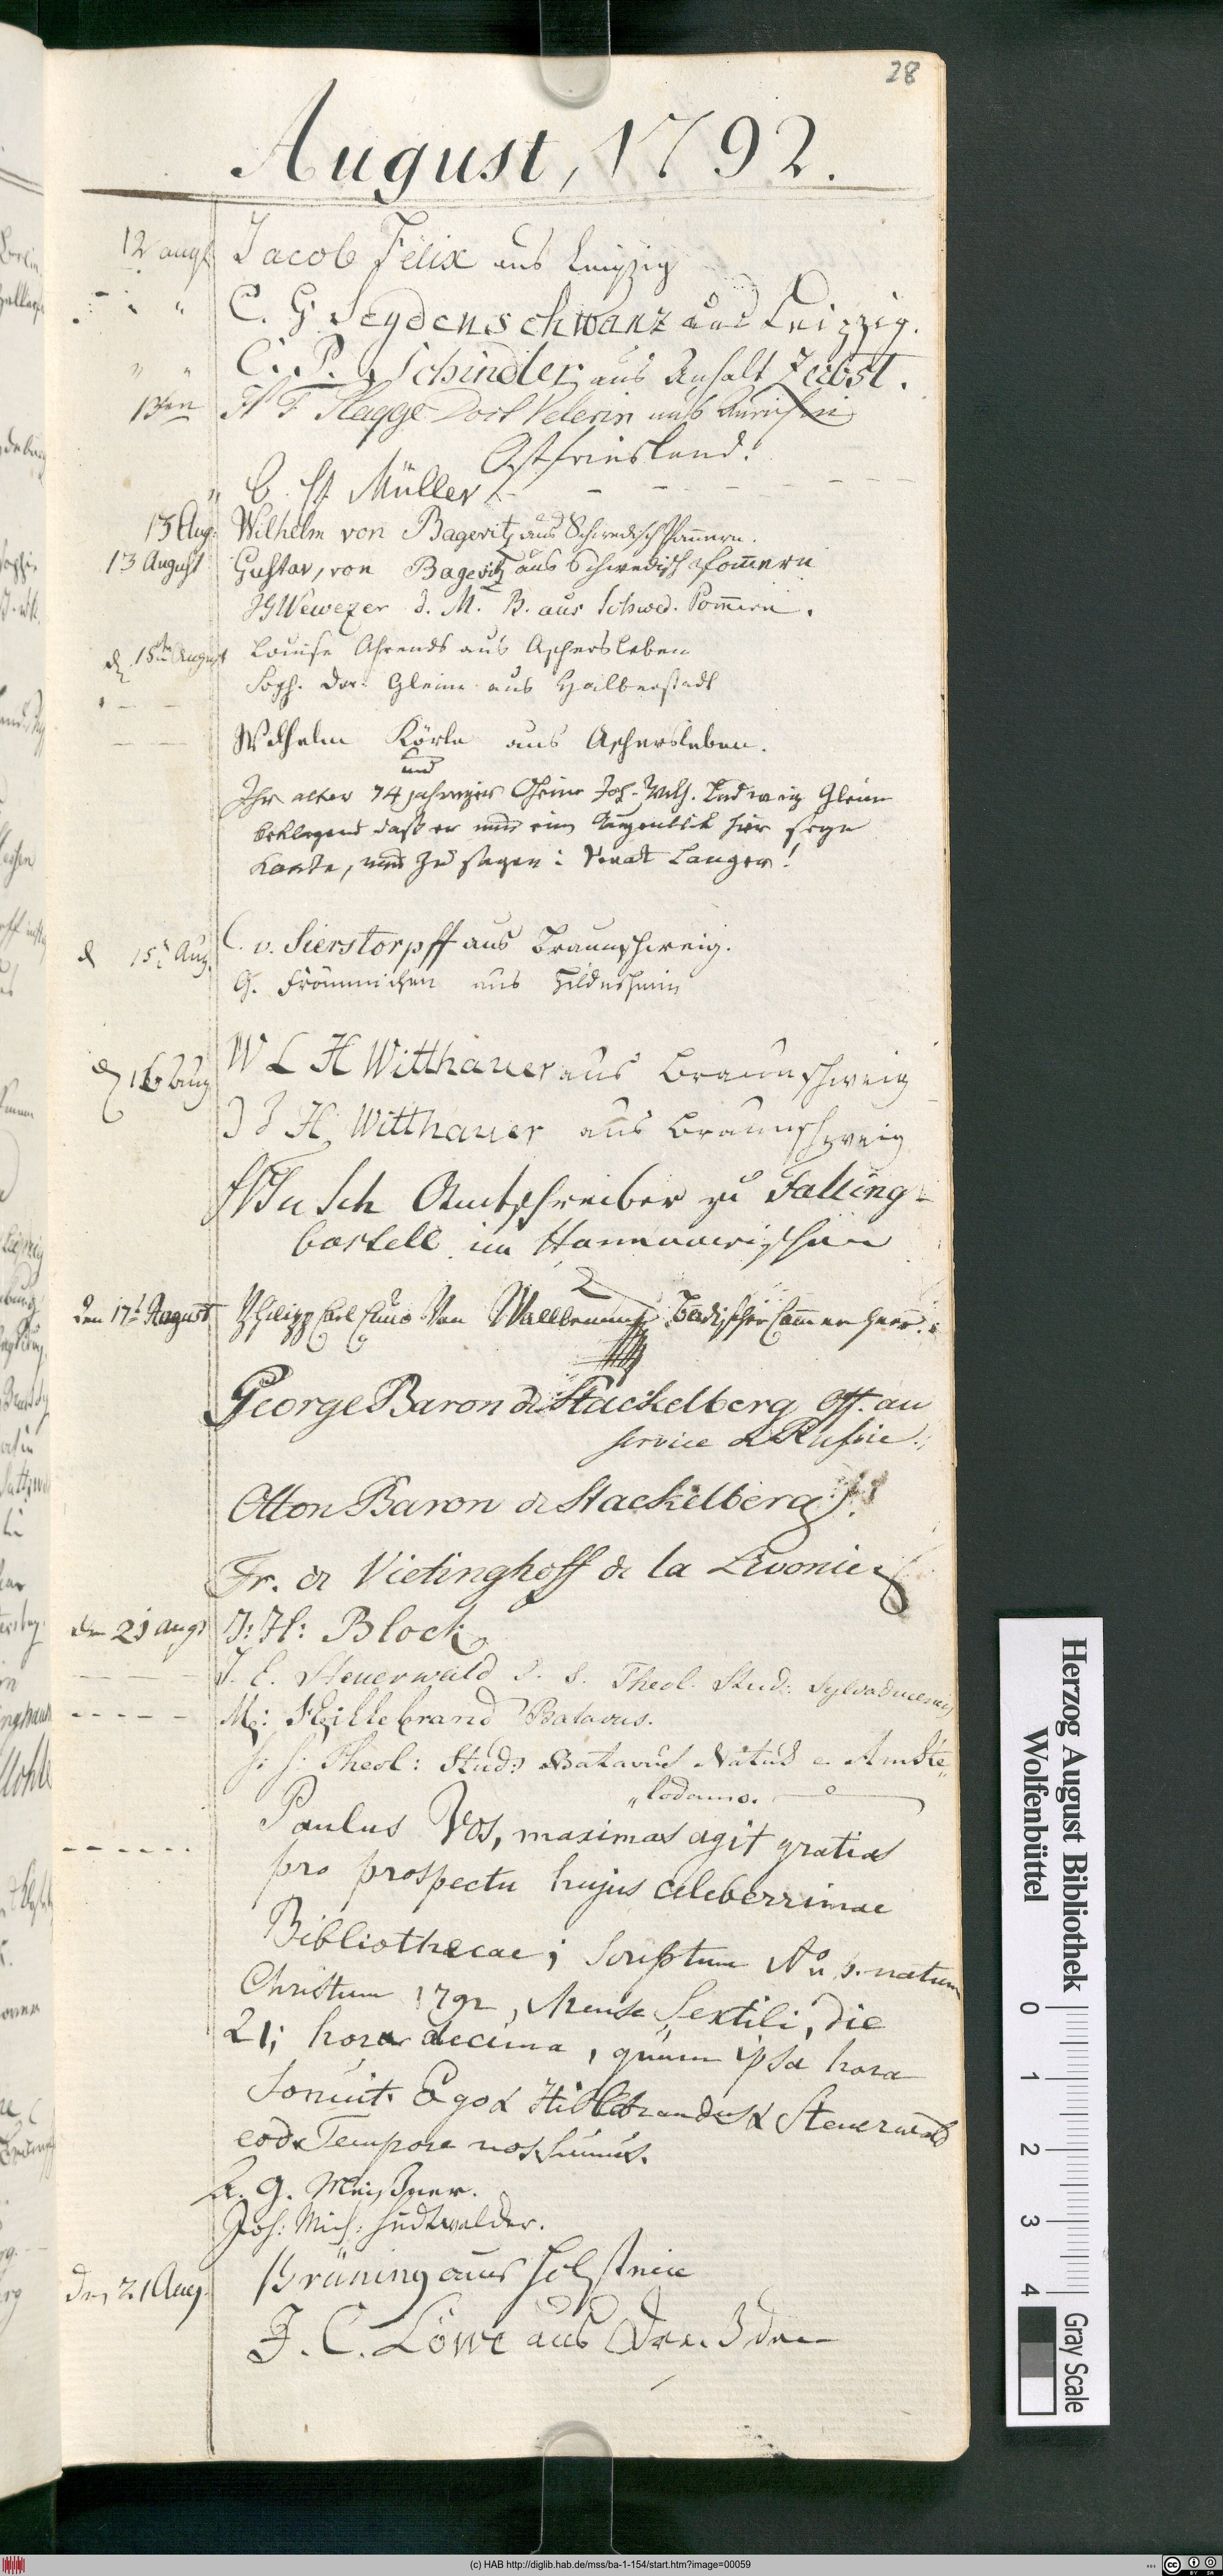 28
August, 1792.
12 augst Jacob Felix aus Leipzig
" " C. G. Seydenschwanz aus Leipzig.
" " C. P. Schindler aus Anhalt Zerbst.
13ten H F Hagge aus Aurich in
Ostfriesland.
" C. H. Müller - - - -
13 Aug. Wilhelm von Bagevitz aus Schwedisch Pom̄ern.
13 August Gustav, von Bagevitz aus Schwedisch Pom̄ern
J G Wewezer d. M. B. aus Schwed. Pom̄ern.
d 15ten August Louise Ahrends aus Aschersleben
- - Soph. Dor. Gleim aus Halberstadt
- - Wilhelm Körte aus Aschersleben.
und
Ihr alter 74 jähriger Oheim Joh. Wilh. Ludwig Gleim
beklagend daß er nur ein Augenblik hier seyn
konte, um zu sagen: Vivat Langer!
d 15t Aug. C. v. Sierstorpff aus Braunschweig.
G. Frömmichen aus Hildesheim
d 16 Aug W L H Witthauer aus Braunschweig
J J H Witthauer aus Braunschweig
Busch Amtschreiber zu Falling-
bostell im Hannoverischen
den 17t August Philipp Carl Von Wallbrunn Badischer Cam̄erherr.
George Baron de Stackelberg Off. au
service de Russie.
Otton Baron de Stackelberg.
Fr. de Vietinghoff de la Livonie
den 21 augs J: H: Block
- - - J. E. Steuerwald S. S. Theol. Stud: Sylvaducensis
- - - - - M: Hillebrand Batavus.
S. S. Theol: Stud: Batavus Natus e Amste
"lodamo.
- - - - - - Paulus Vos, maximas agit gratias
pro prospectu hujus celeberrimae
Bibliothecae; Scriptum Ao p. natum
Christum 1792, Mense Sextili, die
21; hora decima, quum ipsa hora
sonuit. Ego & Hillebrandus & Steuerwald
eod. Tempore nos sumus.
A. G. Meißner.
Joh: Mich: Hudtwalcker.
den 21 Aug. Brüning aus Holstein
J. C. Löwe aus Dresden
Herzog August Bibliothek
Wolfenbüttel
0 1 2 3 4
Gray Scale
(c) HAB http://diglib.hab.de/mss/ba-1-154/start.htm?image=00059